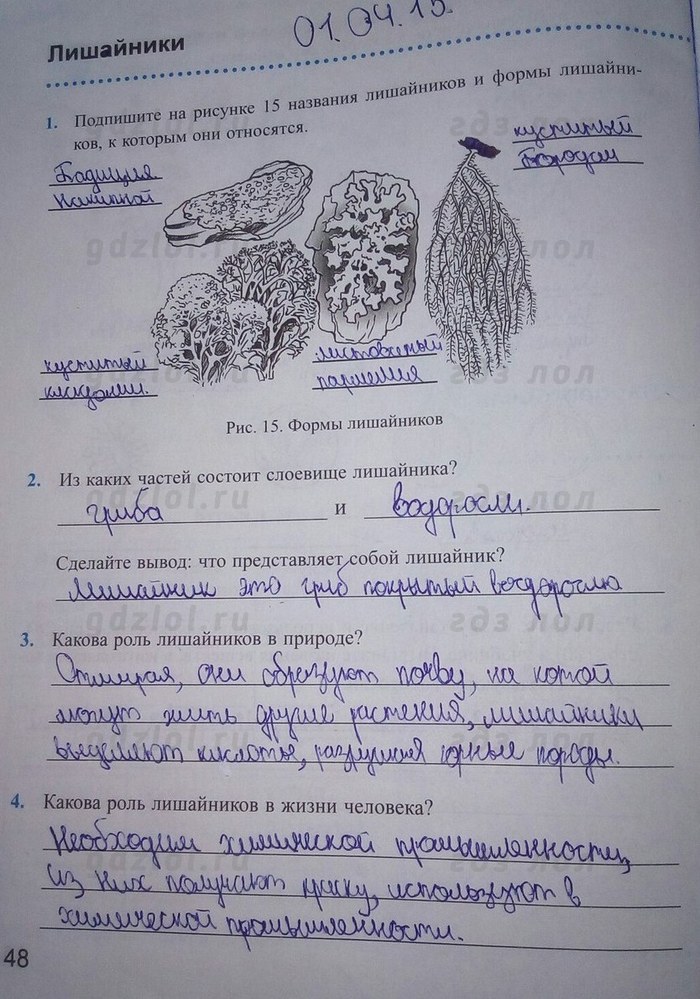 Лишайники
01.04.15.
1. Подпишите на рисунке 15 названия лишайников и формы лишайни-
ков, к которым они относятся.
gdzlol.ru
гдз лол
кустистый
Бородач
Накипной
gdzlol.ru
гдз лол
кустистый
листоватый
пармелия
гдз лол
Рис. 15. Формы лишайников
2. Из каких частей состоит слоевище лишайника?
gdzlol.ru
гдз лол
гриба и водоросли.
Сделайте вывод: что представляет собой лишайник?
Лишайник это гриб покрытый
gdzlol.ru
гдз лол
3. Какова роль лишайников в природе?
Отмирая, они образуют почву, на котой
могут жить другие растения, лишайники
gdzlol.ru
гдз лол
выделяют кислоты, горные породы.
4. Какова роль лишайников в жизни человека?
Необходим химической промышленности,
gdzlol.ru
гдз лол
из них получают краску, используют в
химической промышленности.
48